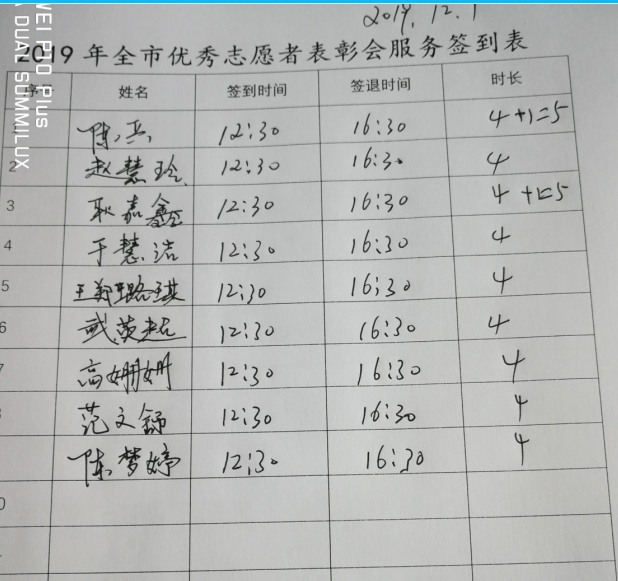 2019.12.1
2019年全市优秀志愿者表彰会服务签到表
序 姓名 签到时间 签退时间 时长
陈 12:30 16:30 4+1=5
2 赵慧玲 12:30 16:30 4
3 耿嘉鑫 12:30 16:30 4+1=5
4 于慧洁 12:30 16:30 4
5 王 12:30 16:30 4
6 武英超 12:30 16:30 4
7 高姗姗 12:30 16:30 4
范文舒 12:30 16:30 4
陈梦婷 12:30 16:30 4
0
WEI P10 Plus
A DUAL SUMMILUX